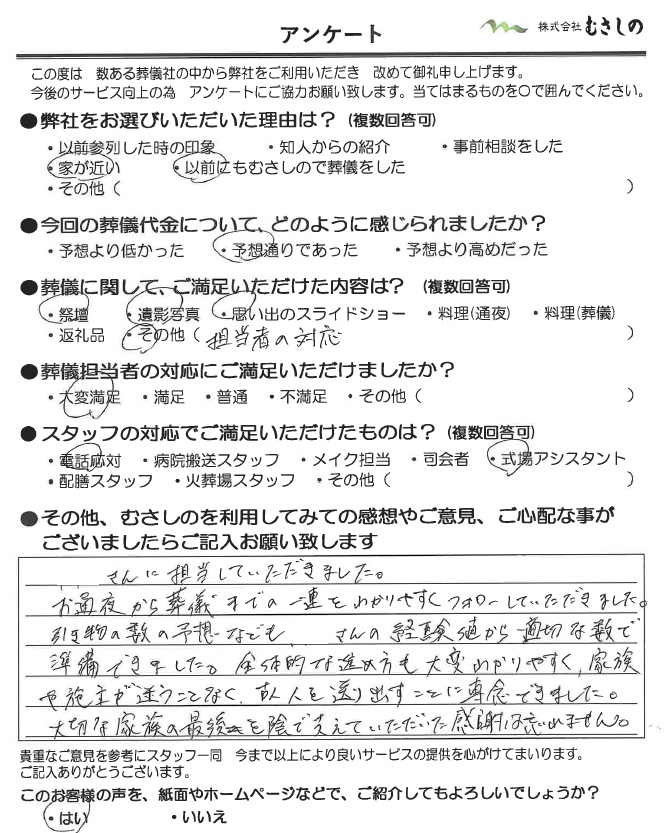 アンケート
株式会社 むさしの
この度は 数ある葬儀社の中から弊社をご利用いただき 改めて御礼申し上げます。
今後のサービス向上の為 アンケートにご協力お願い致します。当てはまるものを〇で囲んでください。
●弊社をお選びいただいた理由は?(複数回答可)
・以前参列した時の印象 ・知人からの紹介 ・事前相談をした
・家が近い ・以前にもむさしので葬儀をした
・その他( )
●今回の葬儀代金について、どのように感じられましたか?
・予想より低かった ・予想通りであった ・予想より高めだった
●葬儀に関して、ご満足いただけた内容は?(複数回答可)
・祭壇 ・遺影写真 ・思い出のスライドショー ・料理(通夜) ・料理(葬儀)
・返礼品 ・その他( 担当者の対応 )
●葬儀担当者の対応にご満足いただけましたか?
・大変満足 ・満足 ・普通 ・不満足 ・その他( )
●スタッフの対応でご満足いただけたものは?(複数回答可)
・電話応対 ・病院搬送スタッフ ・メイク担当 ・司会者 ・式場アシスタント
・配膳スタッフ ・火葬場スタッフ ・その他( )
●その他、むさしのを利用してみての感想やご意見、ご心配な事が
ございましたらご記入お願い致します
さんに担当していただきました。
お通夜から葬儀までの一連をわかりやすくフォローしていただきました。
引き物の数の予想なども、 さんの経験値から適切な数で
準備できました。全体的な進め方も大変わかりやすく、家族
や施主が迷うことなく、故人を送り出すことに専念できました。
大切な家族の最後を陰で支えていただいた感謝は忘れません。
貴重なご意見を参考にスタッフ一同 今まで以上により良いサービスの提供を心がけてまいります。
ご記入ありがとうございます。
このお客様の声を、紙面やホームページなどで、ご紹介してもよろしいでしょうか?
・はい ・いいえ